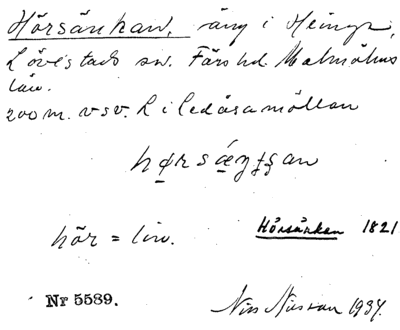 Hörsänkan, äng i Heinge,
Lövestads sn. Färs hd. Malmöhus
län.
200 m. v s v. L i Ledåsamöllan
hör = lin.
Hörsänkan 1821
Nr 5589.
Nils Nilsson 1934.